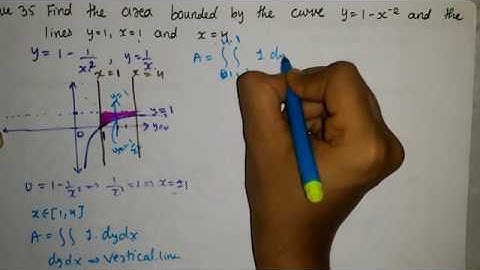 ue 35 Find the area bounded by the curve y=1-x⁻² and the
lines y=1, x=1 and x=4.
y=1-1/x², y=1/x
x=1 x=4
A=∫∫ 1 dy
y=1
y=0
0
0=1-1/x² ⇒ 1/x²=1 ⇒ x=±1
x∈[1,4]
A=∫∫ 1. dydx
dydx ⇒ vertical line